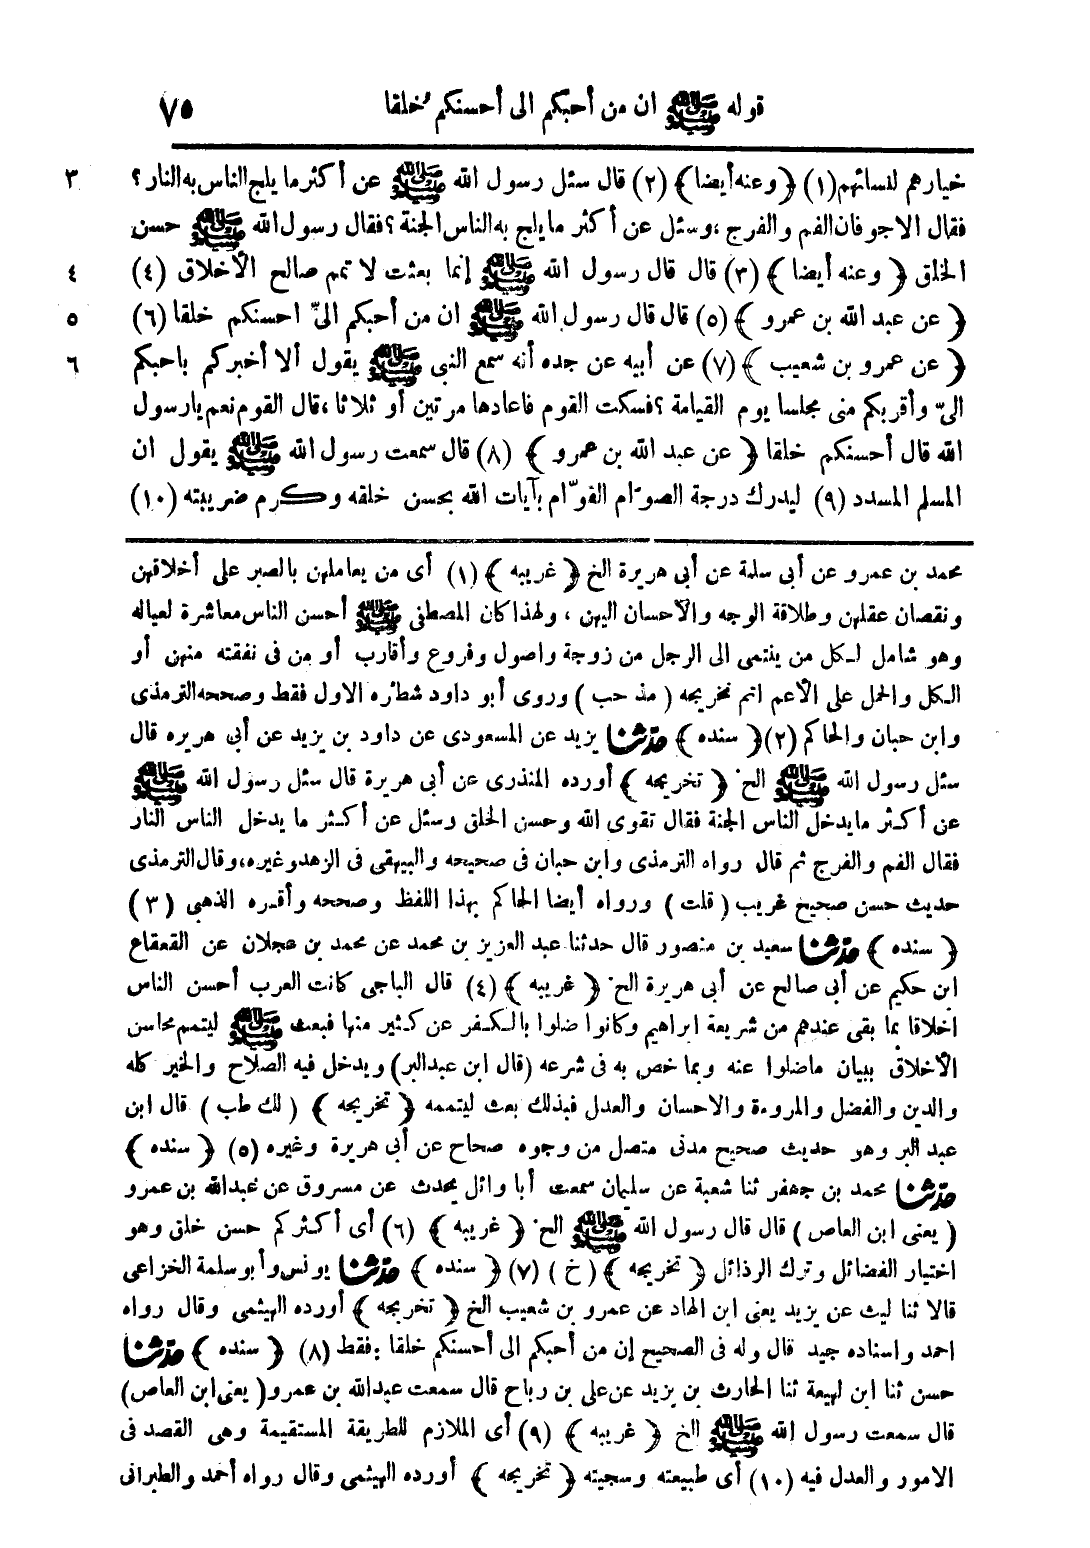 قوله ﷺ ان من أحبكم الى أحسنكم خلقا ٧٥
خيارهم لنسائهم (١) ﴿ وعنه أيضا ﴾ (٢) قال سئل رسول الله ﷺ عن أكثر ما يلج الناس به النار ؟ ٣
فقال الاجوفان الفم والفرج ، وسئل عن أكثر ما يلج به الناس الجنة ؟ فقال رسول الله ﷺ حسن
الخلق ﴿ وعنه أيضا ﴾ (٣) قال قال رسول الله ﷺ إنما بعثت لا تمم صالح الأخلاق (٤) ٤
﴿ عن عبد الله بن عمرو ﴾ (٥) قال قال رسول الله ﷺ ان من أحبكم الىّ احسنكم خلقا (٦) ٥
﴿ عن عمرو بن شعيب ﴾ (٧) عن أبيه عن جده أنه سمع النبى ﷺ يقول ألا أخبركم باحبكم ٦
الىّ وأقربكم منى مجلسا يوم القيامة ؟ فسكت القوم فاعادها مرتين أو ثلاثا ، قال القوم نعم يارسول
الله قال أحسنكم خلقا ﴿ عن عبد الله بن عمرو ﴾ (٨) قال سمعت رسول الله ﷺ يقول ان
المسلم المسدد (٩) ليدرك درجة الصوّام القوّام بآيات الله بحسن خلقه وكرم ضريبته (١٠)
محمد بن عمرو عن أبى سلمة عن أبى هريرة الخ ﴿ غريبه ﴾ (١) أى من يعاملهن بالصبر على أخلاقهن
ونقصان عقلهن وطلاقة الوجه والأحسان اليهن ، ولهذا كان المصطفى ﷺ أحسن الناس معاشرة لعياله
وهو شامل لـكل من ينتمى الى الرجل من زوجة واصول وفروع وأقارب أو من فى نفقته منهن أو
الـكل والحمل على الأعم اتم تخريجه ( مذ حب ) وروى أبو داود شطره الاول فقط وصححه الترمذى
وابن حبان والحاكم (٢) ﴿ سنده ﴾ حدثنا يزيد عن المسعودى عن داود بن يزيد عن أبى هريره قال
سئل رسول الله ﷺ الخ ﴿ تخريجه ﴾ أورده المنذرى عن أبى هريرة قال سئل رسول الله ﷺ
عن أكثر مايدخل الناس الجنة فقال تقوى الله وحسن الخلق وسئل عن أكثر ما يدخل الناس النار
فقال الفم والفرج ثم قال رواه الترمذى وابن حبان فى صحيحه والبيهقى فى الزهد وغيره، وقال الترمذى
حديث حسن صحيح غريب ( قلت ) ورواه أيضا الحاكم بهذا اللفظ وصححه وأقره الذهبى (٣)
﴿ سنده ﴾ حدثنا سعيد بن منصور قال حدثنا عبد العزيز بن محمد عن محمد بن عجلان عن القعقاع
ابن حكيم عن أبى صالح عن أبى هريرة الخ ﴿ غريبه ﴾ (٤) قال الباجى كانت العرب أحسن الناس
اخلاقا بما بقى عندهم من شريعة ابراهيم وكانوا ضلوا بالكفر عن كثير منها فبعث ﷺ ليتمم محاسن
الأخلاق ببيان ماضلوا عنه وبما خص به فى شرعه (قال ابن عبد البر) ويدخل فيه الصلاح والخير كله
والدين والفضل والمروءة والاحسان والعدل فبذلك بعث ليتممه ﴿ تخريجه ﴾ ( لك طب ) قال ابن
عبد البر وهو حديث صحيح مدنى متصل من وجوه صحاح عن أبى هريرة وغيره (٥) ﴿ سنده ﴾
حدثنا محمد بن جعفر ثنا شعبة عن سليمان سمعت أبا وائل يحدث عن مسروق عن عبد الله بن عمرو
( يعنى ابن العاص ) قال قال رسول الله ﷺ الخ ﴿ غريبه ﴾ (٦) أى أكثركم حسن خلق وهو
اختيار الفضائل وترك الرذائل ﴿ تخريجه ﴾ ( خ ) (٧) ﴿ سنده ﴾ حدثنا يونس وأبو سلمة الخزاعى
قالا ثنا ليث عن يزيد يعنى ابن الهاد عن عمرو بن شعيب الخ ﴿ تخريجه ﴾ أورده الهيثمى وقال رواه
احمد واسناده جيد قال وله فى الصحيح إن من أحبكم الى أحسنكم خلقا : فقط (٨) ﴿ سنده ﴾ حدثنا
حسن ثنا ابن لهيعة ثنا الحارث بن يزيد عن على بن رباح قال سمعت عبد الله بن عمرو ( يعنى ابن العاص )
قال سمعت رسول الله ﷺ الخ ﴿ غريبه ﴾ (٩) أى الملازم للطريقة المستقيمة وهى القصد فى
الامور والعدل فيه (١٠) أى طبيعته وسجيته ﴿ تخريجه ﴾ أورده الهيثمى وقال رواه أحمد والطبرانى